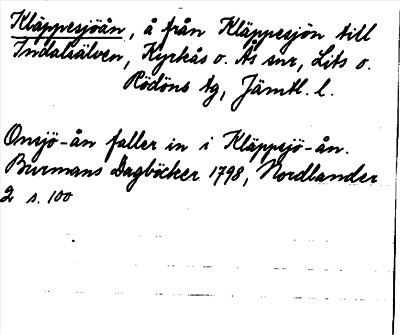 Kläppesjöån, å från Kläppesjön till
Indalsälven, Kyrkås o. Ås snr, Lits o.
Rödöns tg, Jämtl. l.
Onsjö-ån faller in i Kläppsjö-ån.
Burmans Dagböcker 1798, Nordlander
2 s. 100